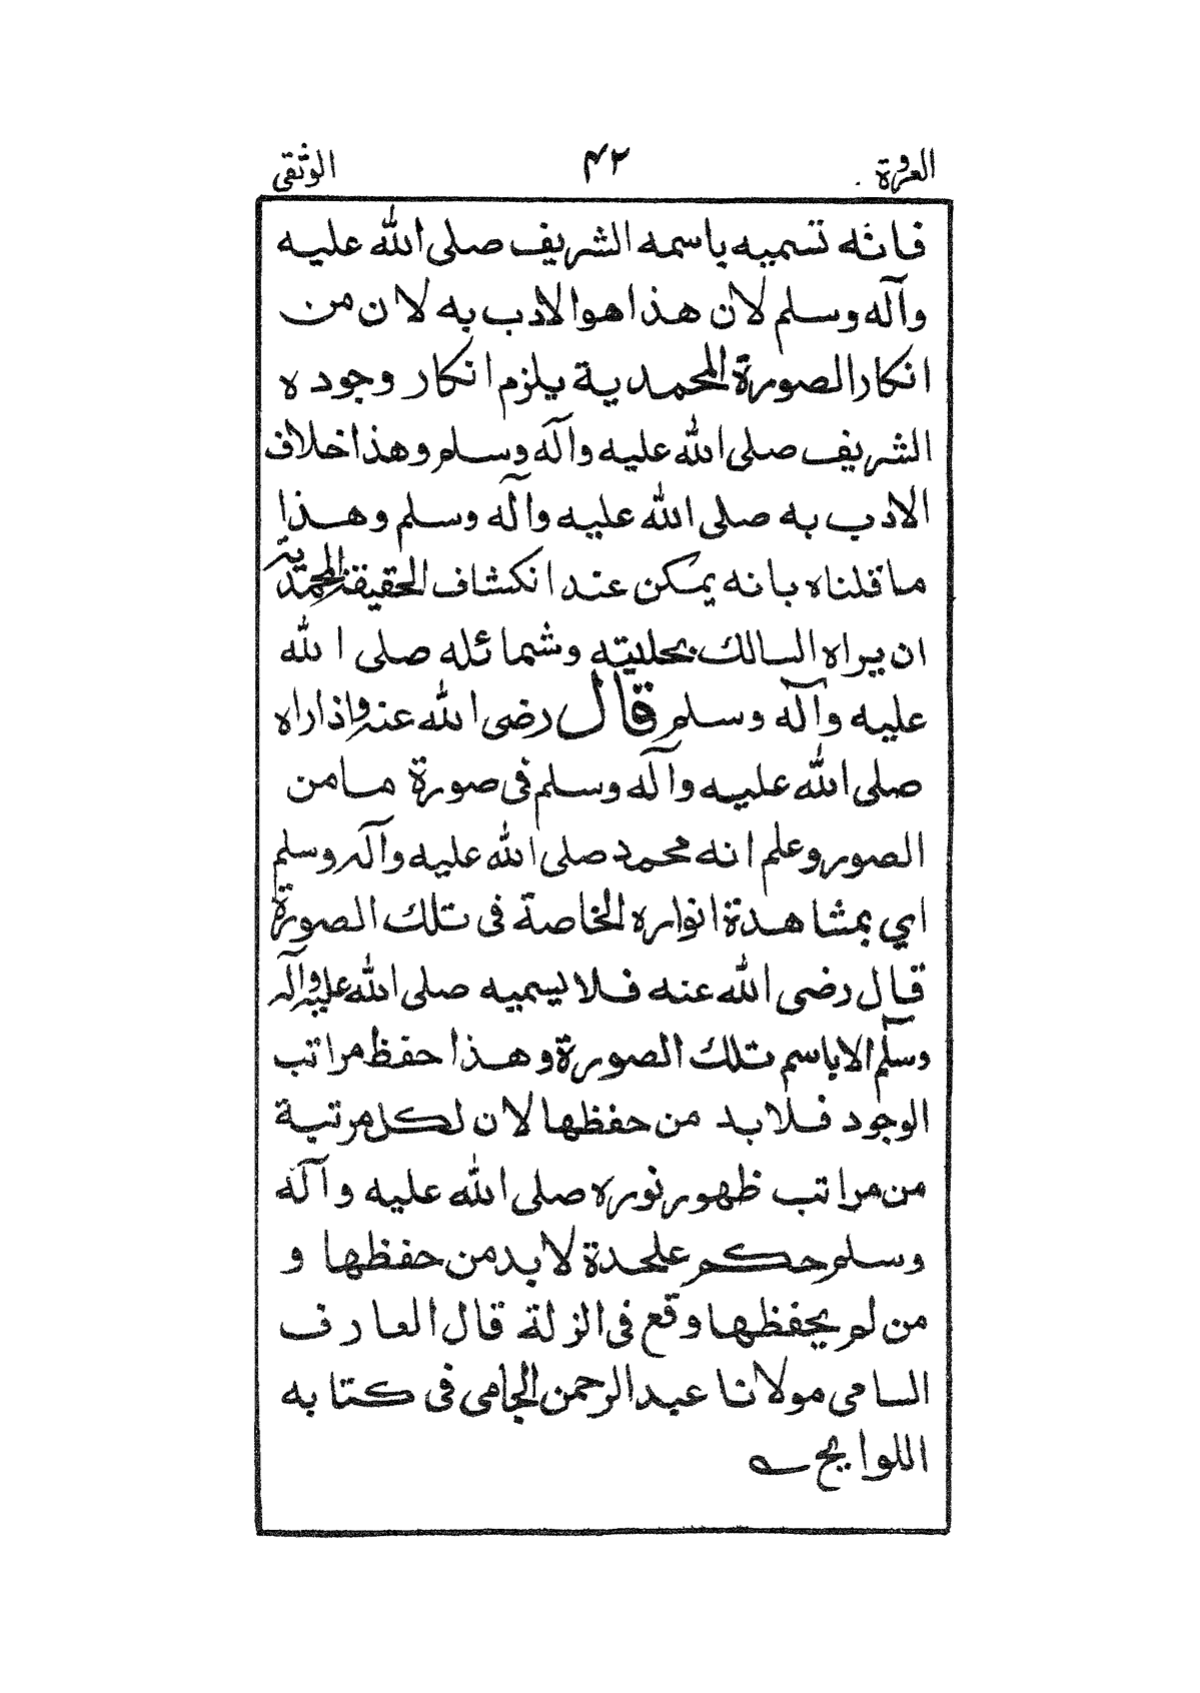 العروة ٤٢ الوثقى
فانه تسميه باسمه الشريف صلى الله عليه
وآله وسلم لان هذا هو الادب به لان من
انكار الصورة المحمدية يلزم انكار وجوده
الشريف صلى الله عليه وآله وسلم وهذا خلاف
الادب به صلى الله عليه وآله وسلم وهذا
ما قلناه بانه يمكن عند انكشاف الحقيقة المحمدية
ان يراه السالك بحليته وشمائله صلى الله
عليه وآله وسلم قال رضى الله عنه واذا راه
صلى الله عليه وآله وسلم فى صورة ما من
الصور وعلم انه محمد صلى الله عليه وآله وسلم
اي بمشاهدة انواره الخاصة فى تلك الصورة
قال رضى الله عنه فلا يسميه صلى الله عليه وآله
وسلم الا باسم تلك الصورة وهذا حفظ مراتب
الوجود فلا بد من حفظها لان لكل مرتبة
من مراتب ظهور نوره صلى الله عليه وآله
وسلم حكم علحدة لا بد من حفظها و
من لم يحفظها وقع فى الزلة قال العارف
السامى مولانا عبد الرحمن الجامى فى كتابه
اللوايح